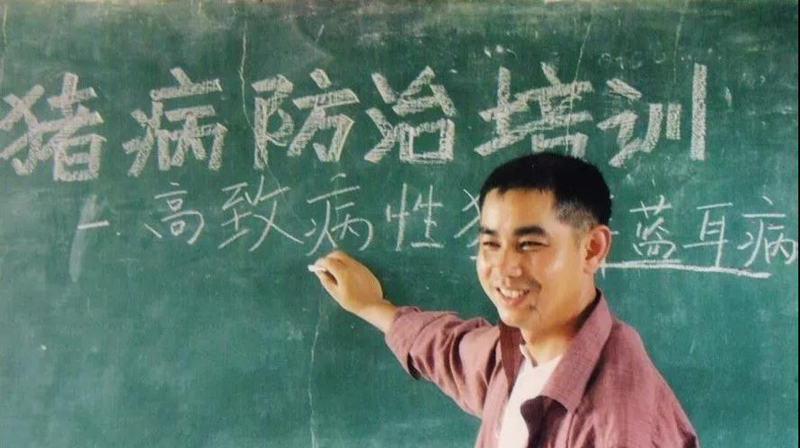 猪病防治培训
一.高致病性猪蓝耳病